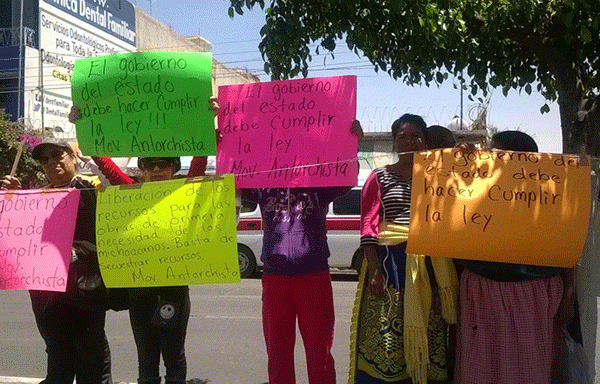 Clínica Dental Familiar
Servicios Odontológicos
para Toda la
El gobierno
del estado
debe hacer Cumplir
la ley!!!
Mov Antorchista
El gobierno del
estado
debe Cumplir
la ley
Mov. Antorchista
gobierno
Estado
umplir
Mov.
Antorchista
Liberación de los
recursos para las
obras de primera
necesidad de los
michoacanos. Basta de
secuestrar recursos.
Mov Antorchista
El gobierno del
estado debe
hacer Cumplir
la ley